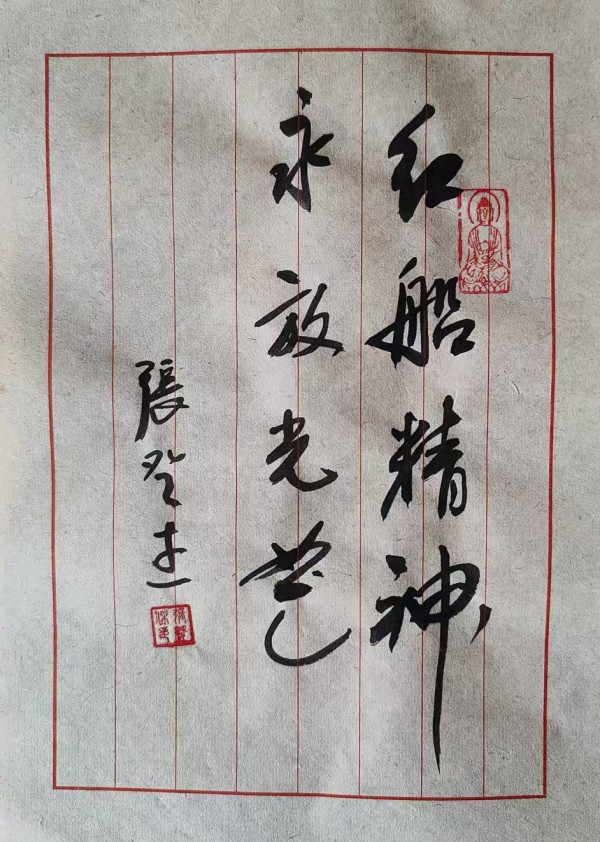 红船精神
永放光芒
張登